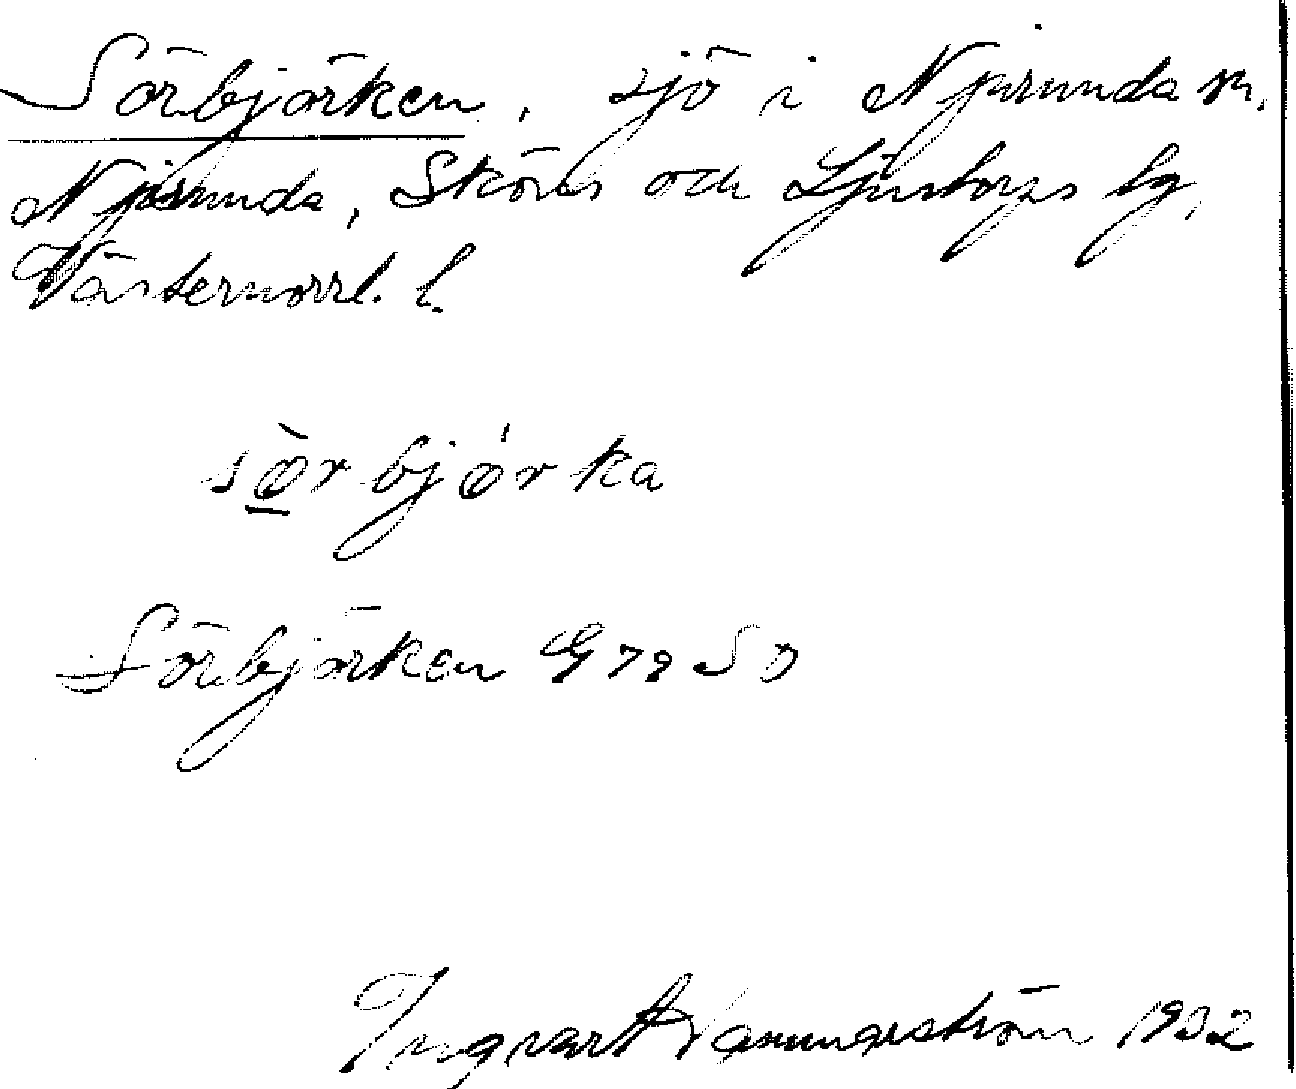 Sörbjörken, sjö i Njurunda sn,
Njurunda, Sköns och Ljustorps tg,
Västernorrl. l.
sœ̀rbjǿrka
Sörbjörken G 79 SO
Ingvar Hammarström 1932